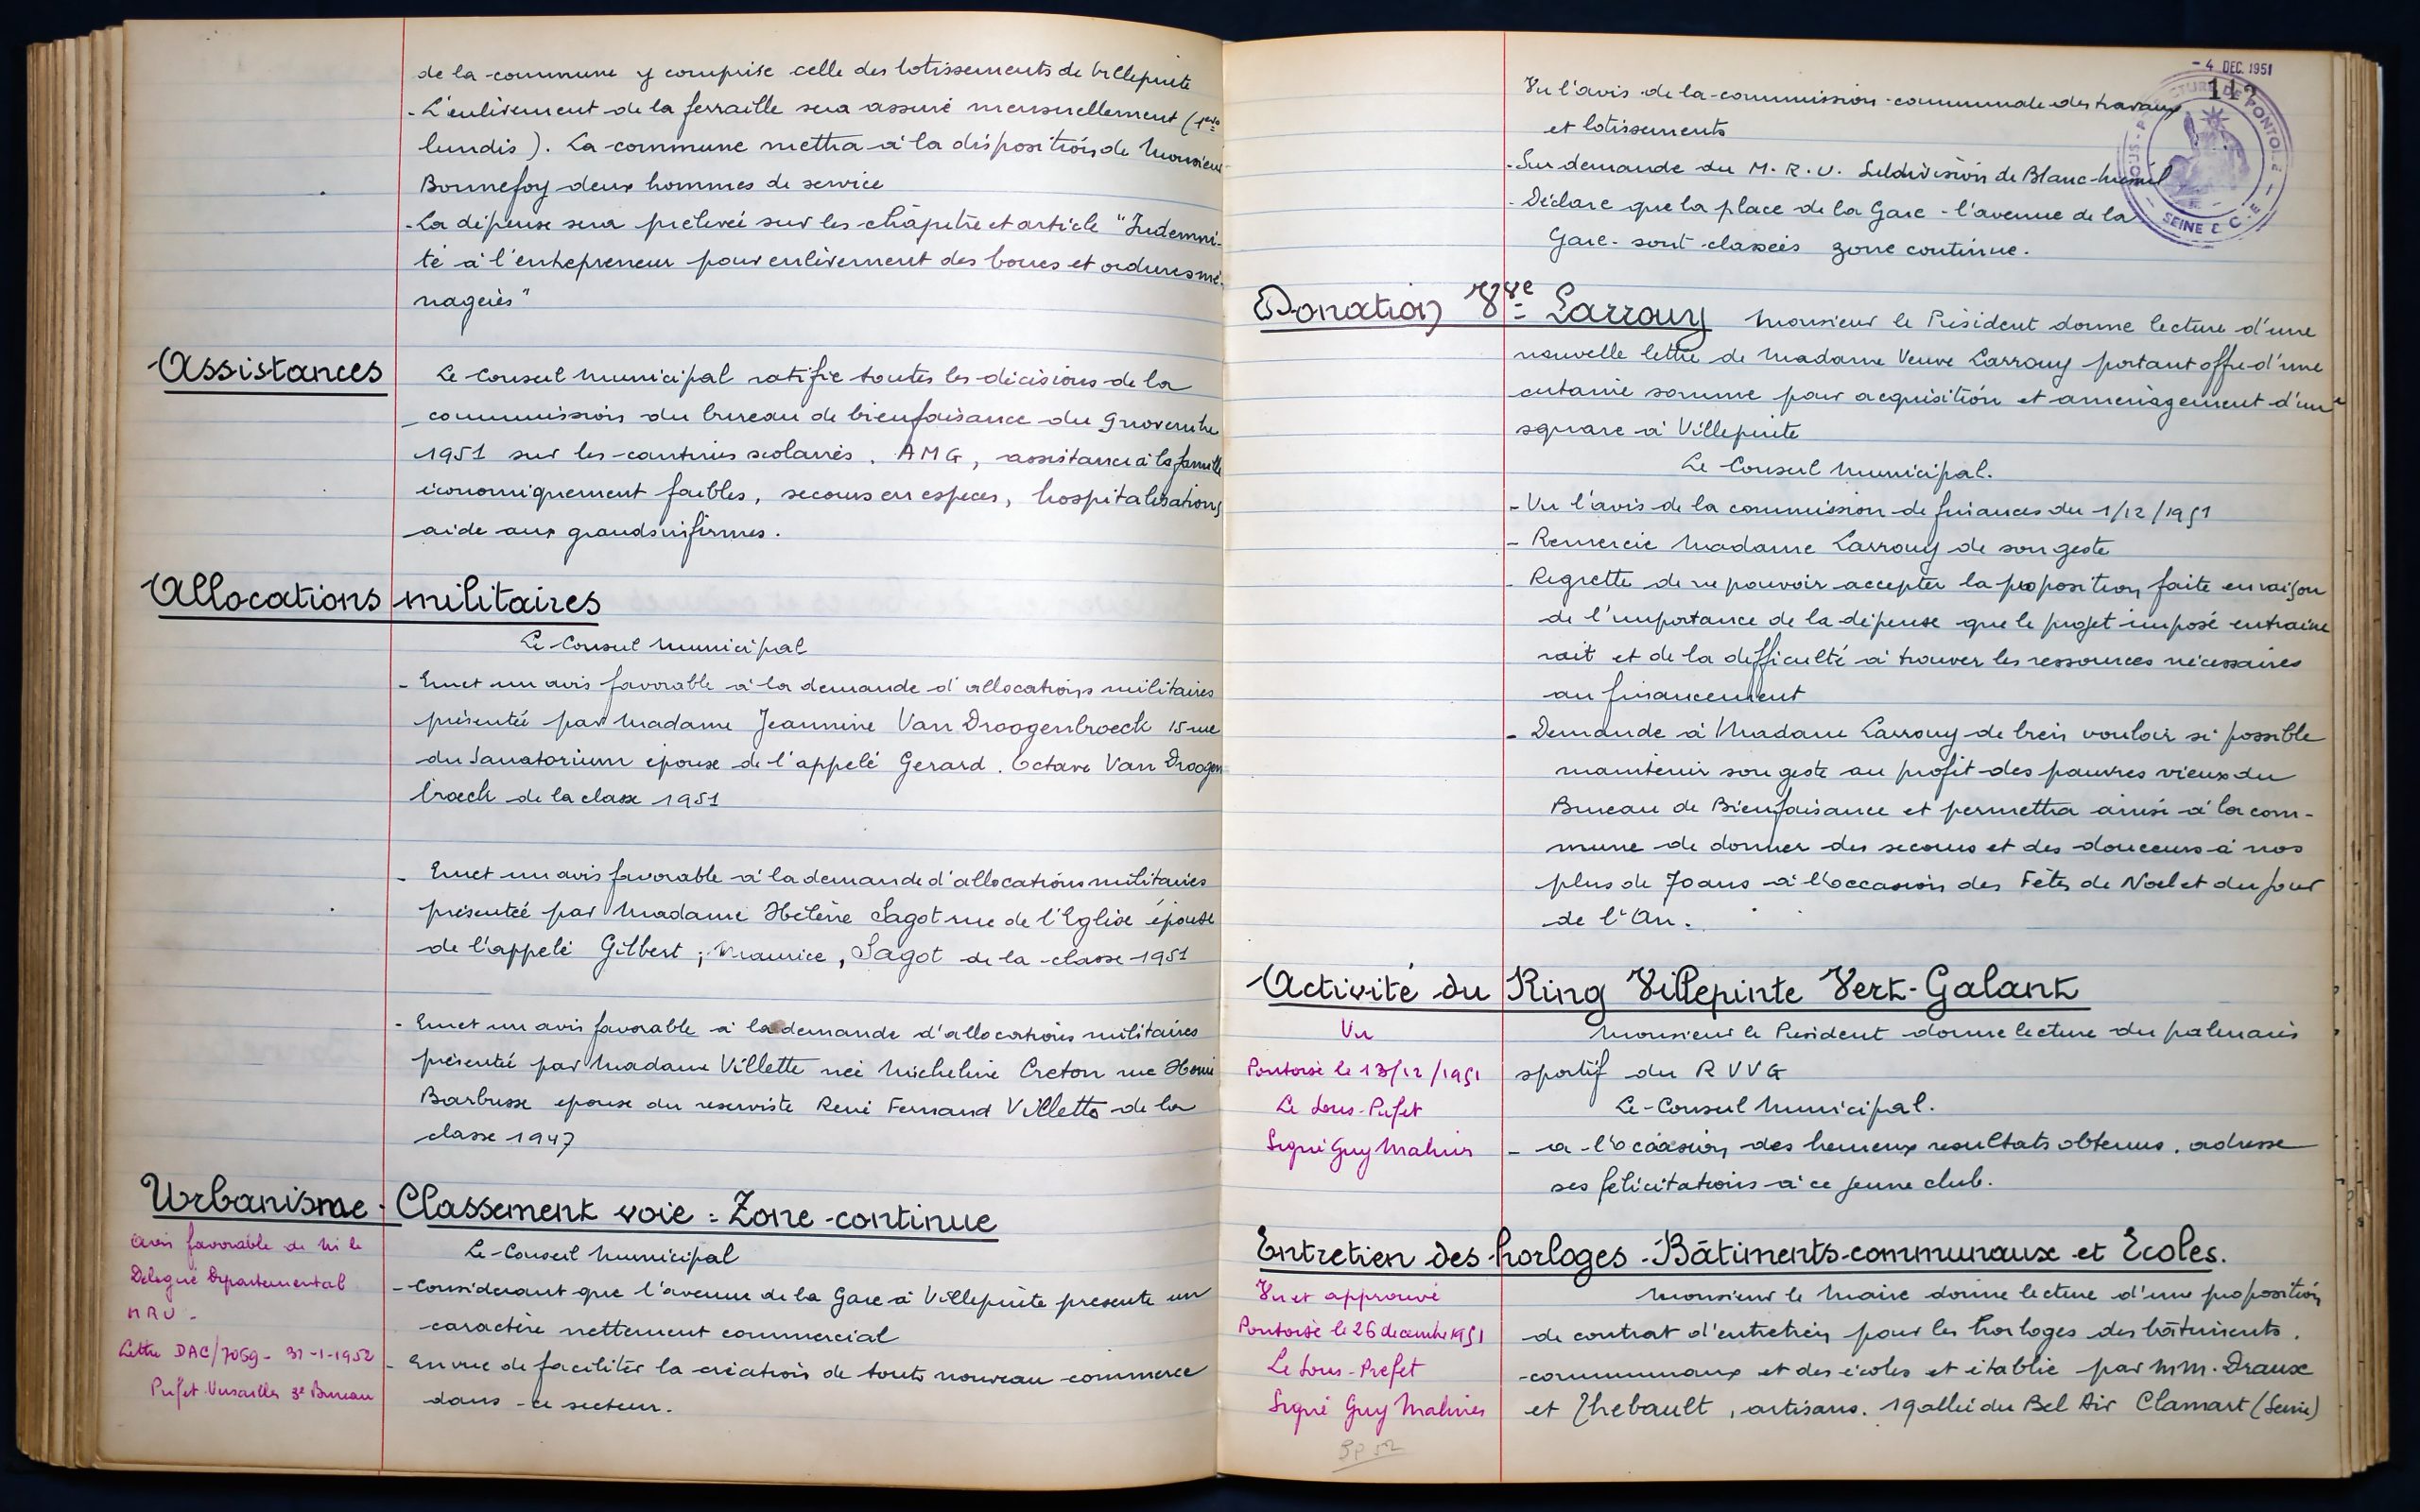 de la commune y comprise celle des lotissements de Villepinte
- L'enlèvement de la ferraille sera assuré mensuellement (1ers
lundis). La commune mettra à la disposition de Monsieur
Bonnefoy deux hommes de service
- La dépense sera prelevée sur les chapitre et article "Indemni-
té à l'entrepreneur pour enlèvement des boues et ordures mé-
nagères"
Assistances
Le Conseil Municipal ratifie toutes les décisions de la
commission du bureau de bienfaisance du 9 novembre
1951 sur les cantines scolaires. AMG, assistance à la famille
économiquement faibles, secours en espèces, hospitalisations
aide aux grands infirmes.
Allocations militaires
Le Conseil Municipal
- Emet un avis favorable à la demande d'allocations militaires
présentée par Madame Jeannine Van Droogenbroeck 15 rue
du Sanatorium épouse de l'appelé Gerard. Octave Van Droogen
broeck de la classe 1951
- Emet un avis favorable à la demande d'allocations militaires
présentée par Madame Hélène Sagot rue de l'Eglise épouse
de l'appelé Gilbert, Maurice, Sagot de la classe 1951
- Emet un avis favorable à la demande d'allocations militaires
présentée par Madame Villette née Micheline Creton rue Henri
Barbusse epouse du reserviste René Fernand Villette de la
classe 1947
Urbanisme - Classement voie = Zone continue
Avis favorable de M le
Délégué Départemental
MRU -
Lettre DAC/7069 - 31-1-1952
Préfet Versailles 3e Bureau
Le Conseil Municipal
- Considerant que l'avenue de la Gare à Villepinte presente un
caractère nettement commercial
- En vue de faciliter la création de tout nouveau commerce
dans ce secteur.
- 4 DEC. 1951
SOUS-PRÉFECTURE DE PONTOISE
SEINE & O
Vu l'avis de la commission communale des travaux
et lotissements
- Sur demande du M.R.U. Subdivision de Blanc-Mesnil
- Déclare que la place de la Gare - l'avenue de la
Gare - sont classées zone continue.
Donation Vve Larrouy
Monsieur le Président donne lecture d'une
nouvelle lettre de Madame Veuve Larrouy portant offre d'une
certaine somme pour acquisition et aménagement d'un
square à Villepinte
Le Conseil Municipal.
- Vu l'avis de la commission de finances du 1/12/1951
- Remercie Madame Larrouy de son geste
- Regrette de ne pouvoir accepter la proposition faite en raison
de l'importance de la dépense que le projet imposé entraine
rait et de la difficulté à trouver les ressources nécessaires
au financement
- Demande à Madame Larrouy de bien vouloir si possible
maintenir son geste au profit des pauvres vieux du
Bureau de Bienfaisance et permettra ainsi à la com-
mune de donner des secours et des douceurs à nos
plus de 70 ans à l'occasion des Fêtes de Noël et du jour
de l'An.
Activité du Ring Villepinte Vert-Galant
Vu
Pontoise le 13/12/1951
Le Sous-Préfet
Signé Guy Malines
Monsieur le Président donne lecture du palmarès
sportif du R V V G
Le Conseil Municipal.
- a l'occasion des heureux resultats obtenus. adresse
ses félicitations à ce jeune club.
Entretien des horloges - Bâtiments communaux et Ecoles.
Vu et approuvé
Pontoise le 26 decembre 1951
Le Sous-Préfet
Signé Guy Malines
Monsieur le Maire donne lecture d'une proposition
de contrat d'entretien pour les horloges des bâtiments.
communaux et des écoles et établie par MM. Draux
et Thebault, artisans. 19 allée du Bel Air Clamart (Seine)